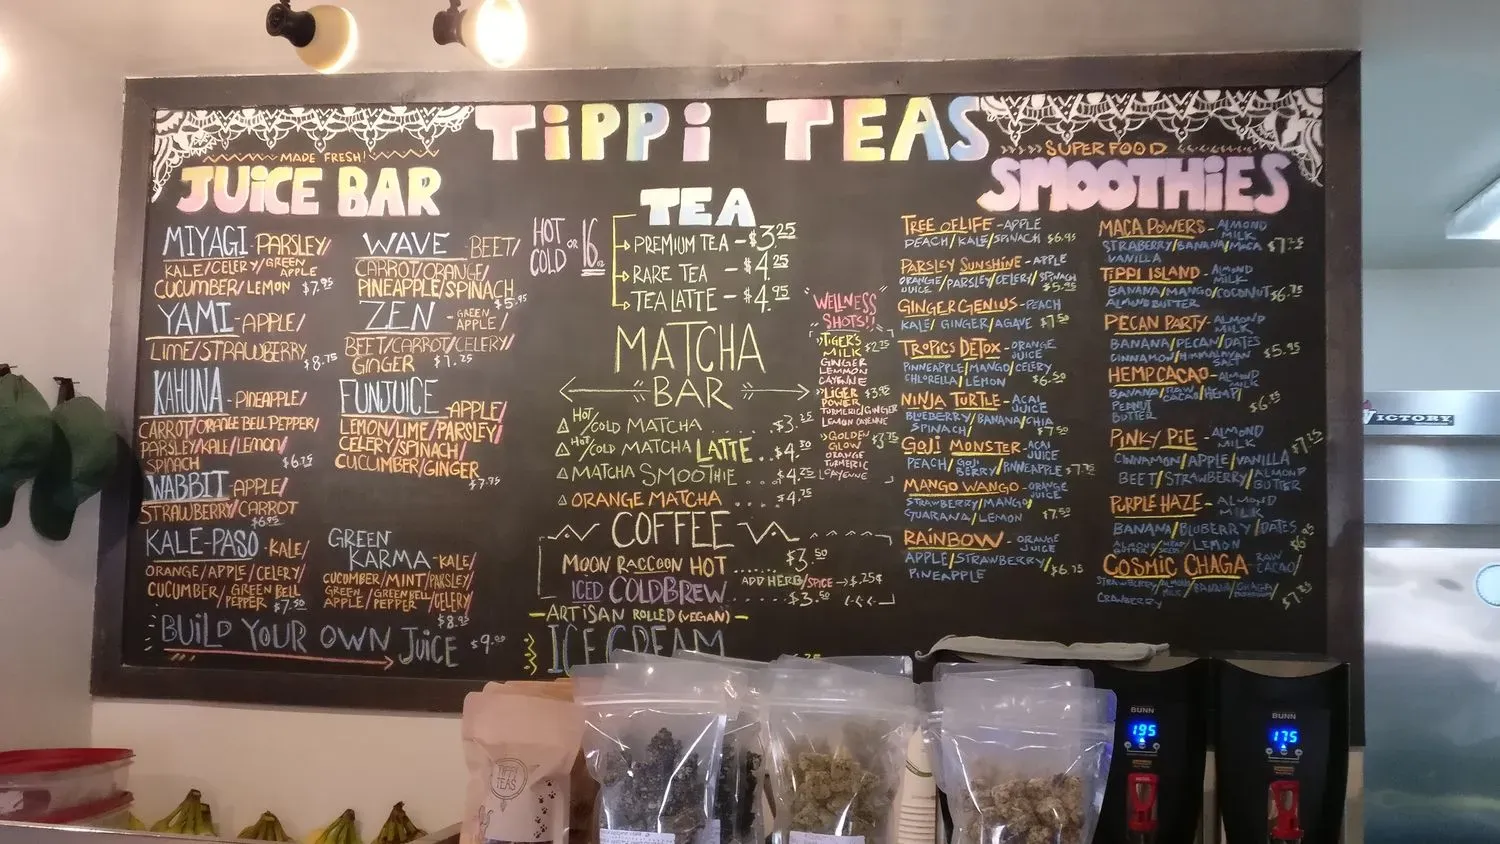 TIPPI TEAS
MADE FRESH!
JUICE BAR
MIYAGI - PARSLEY/
KALE/CELERY/GREEN APPLE
CUCUMBER/LEMON $7.95
YAMI - APPLE/
LIME/STRAWBERRY
$8.75
KAHUNA - PINEAPPLE/
CARROT/ORANGE BELL PEPPER/
PARSLEY/KALE/LEMON/
SPINACH $6.75
WABBIT - APPLE/
STRAWBERRY/CARROT
$6.95
KALE-PASO - KALE/
ORANGE/APPLE/CELERY/
CUCUMBER/GREEN BELL PEPPER $7.50
WAVE - BEET/
CARROT/ORANGE/
PINEAPPLE/SPINACH
$5.95
ZEN - GREEN APPLE/
BEET/CARROT/CELERY/
GINGER $7.25
FUNJUICE - APPLE/
LEMON/LIME/PARSLEY/
CELERY/SPINACH/
CUCUMBER/GINGER
$7.75
GREEN
KARMA - KALE/
CUCUMBER/MINT/PARSLEY/
GREEN APPLE/GREEN BELL PEPPER/CELERY
$8.95
BUILD YOUR OWN JUICE $9.00
TEA
HOT OR COLD 16 oz
PREMIUM TEA - $3.25
RARE TEA - $4.25
TEA LATTE - $4.95
MATCHA
BAR
HOT/COLD MATCHA .... $3.25
HOT/COLD MATCHA LATTE .. $4.50
MATCHA SMOOTHIE .... $4.25
ORANGE MATCHA .... $4.75
COFFEE
MOON RACCOON HOT ...... $3.50
ADD HERB/SPICE → $.25¢
ICED COLDBREW ...... $3.50
ARTISAN ROLLED (VEGAN)
ICE CREAM
WELLNESS
SHOTS!!
TIGER'S
MILK $2.75
GINGER
LEMMON
CAYENNE
LIGER $3.95
POWER
TURMERIC/GINGER
LEMON CAYENNE
GOLDEN
GLOW $3.75
ORANGE
TURMERIC
CAYENNE
SUPER FOOD
SMOOTHIES
TREE OF LIFE - APPLE
PEACH/KALE/SPINACH $6.95
PARSLEY SUNSHINE - APPLE
ORANGE/PARSLEY/CELERY/SPINACH
JUICE $5.95
GINGER GENIUS - PEACH
KALE/GINGER/AGAVE $7.50
TROPICS DETOX - ORANGE JUICE
PINNEAPPLE/MANGO/CELERY
CHLORELLA/LEMON $6.50
NINJA TURTLE - ACAI JUICE
BLUEBERRY/BANANA/CHIA
SPINACH/ $7.50
GOJI MONSTER - ACAI JUICE
PEACH/GOJI BERRY/PINNEAPPLE $7.75
MANGO WANGO - ORANGE JUICE
STRAWBERRY/MANGO/
GUARANA/LEMON $7.50
RAINBOW - ORANGE JUICE
APPLE/STRAWBERRY/
PINEAPPLE $6.75
MACA POWERS - ALMOND MILK
STRABERRY/BANANA/MACA $7.25
VANILLA
TIPPI ISLAND - ALMOND MILK
BANANA/MANGO/COCONUT $6.75
ALMOND BUTTER
PECAN PARTY - ALMOND MILK
BANANA/PECAN/DATES
CINNAMON/HIMMALAYAN SALT $5.95
HEMP CACAO - ALMOND MILK
BANANA/RAW CACAO/HEMP/
PEANUT BUTTER
PINKY PIE - ALMOND MILK $7.25
CINNAMON/APPLE/VANILLA
BEET/STRAWBERRY/ALMOND BUTTER
PURPLE HAZE - ALMOND MILK
BANANA/BLUBERRY/DATES
LEMON
COSMIC CHAGA - RAW CACAO/
STRAWBERRY/ALMOND MILK/BANANA/CHAGA
CRANBERRY $7.25
VICTORY
BUNN
195
BUNN
175
TIPPI
TEAS